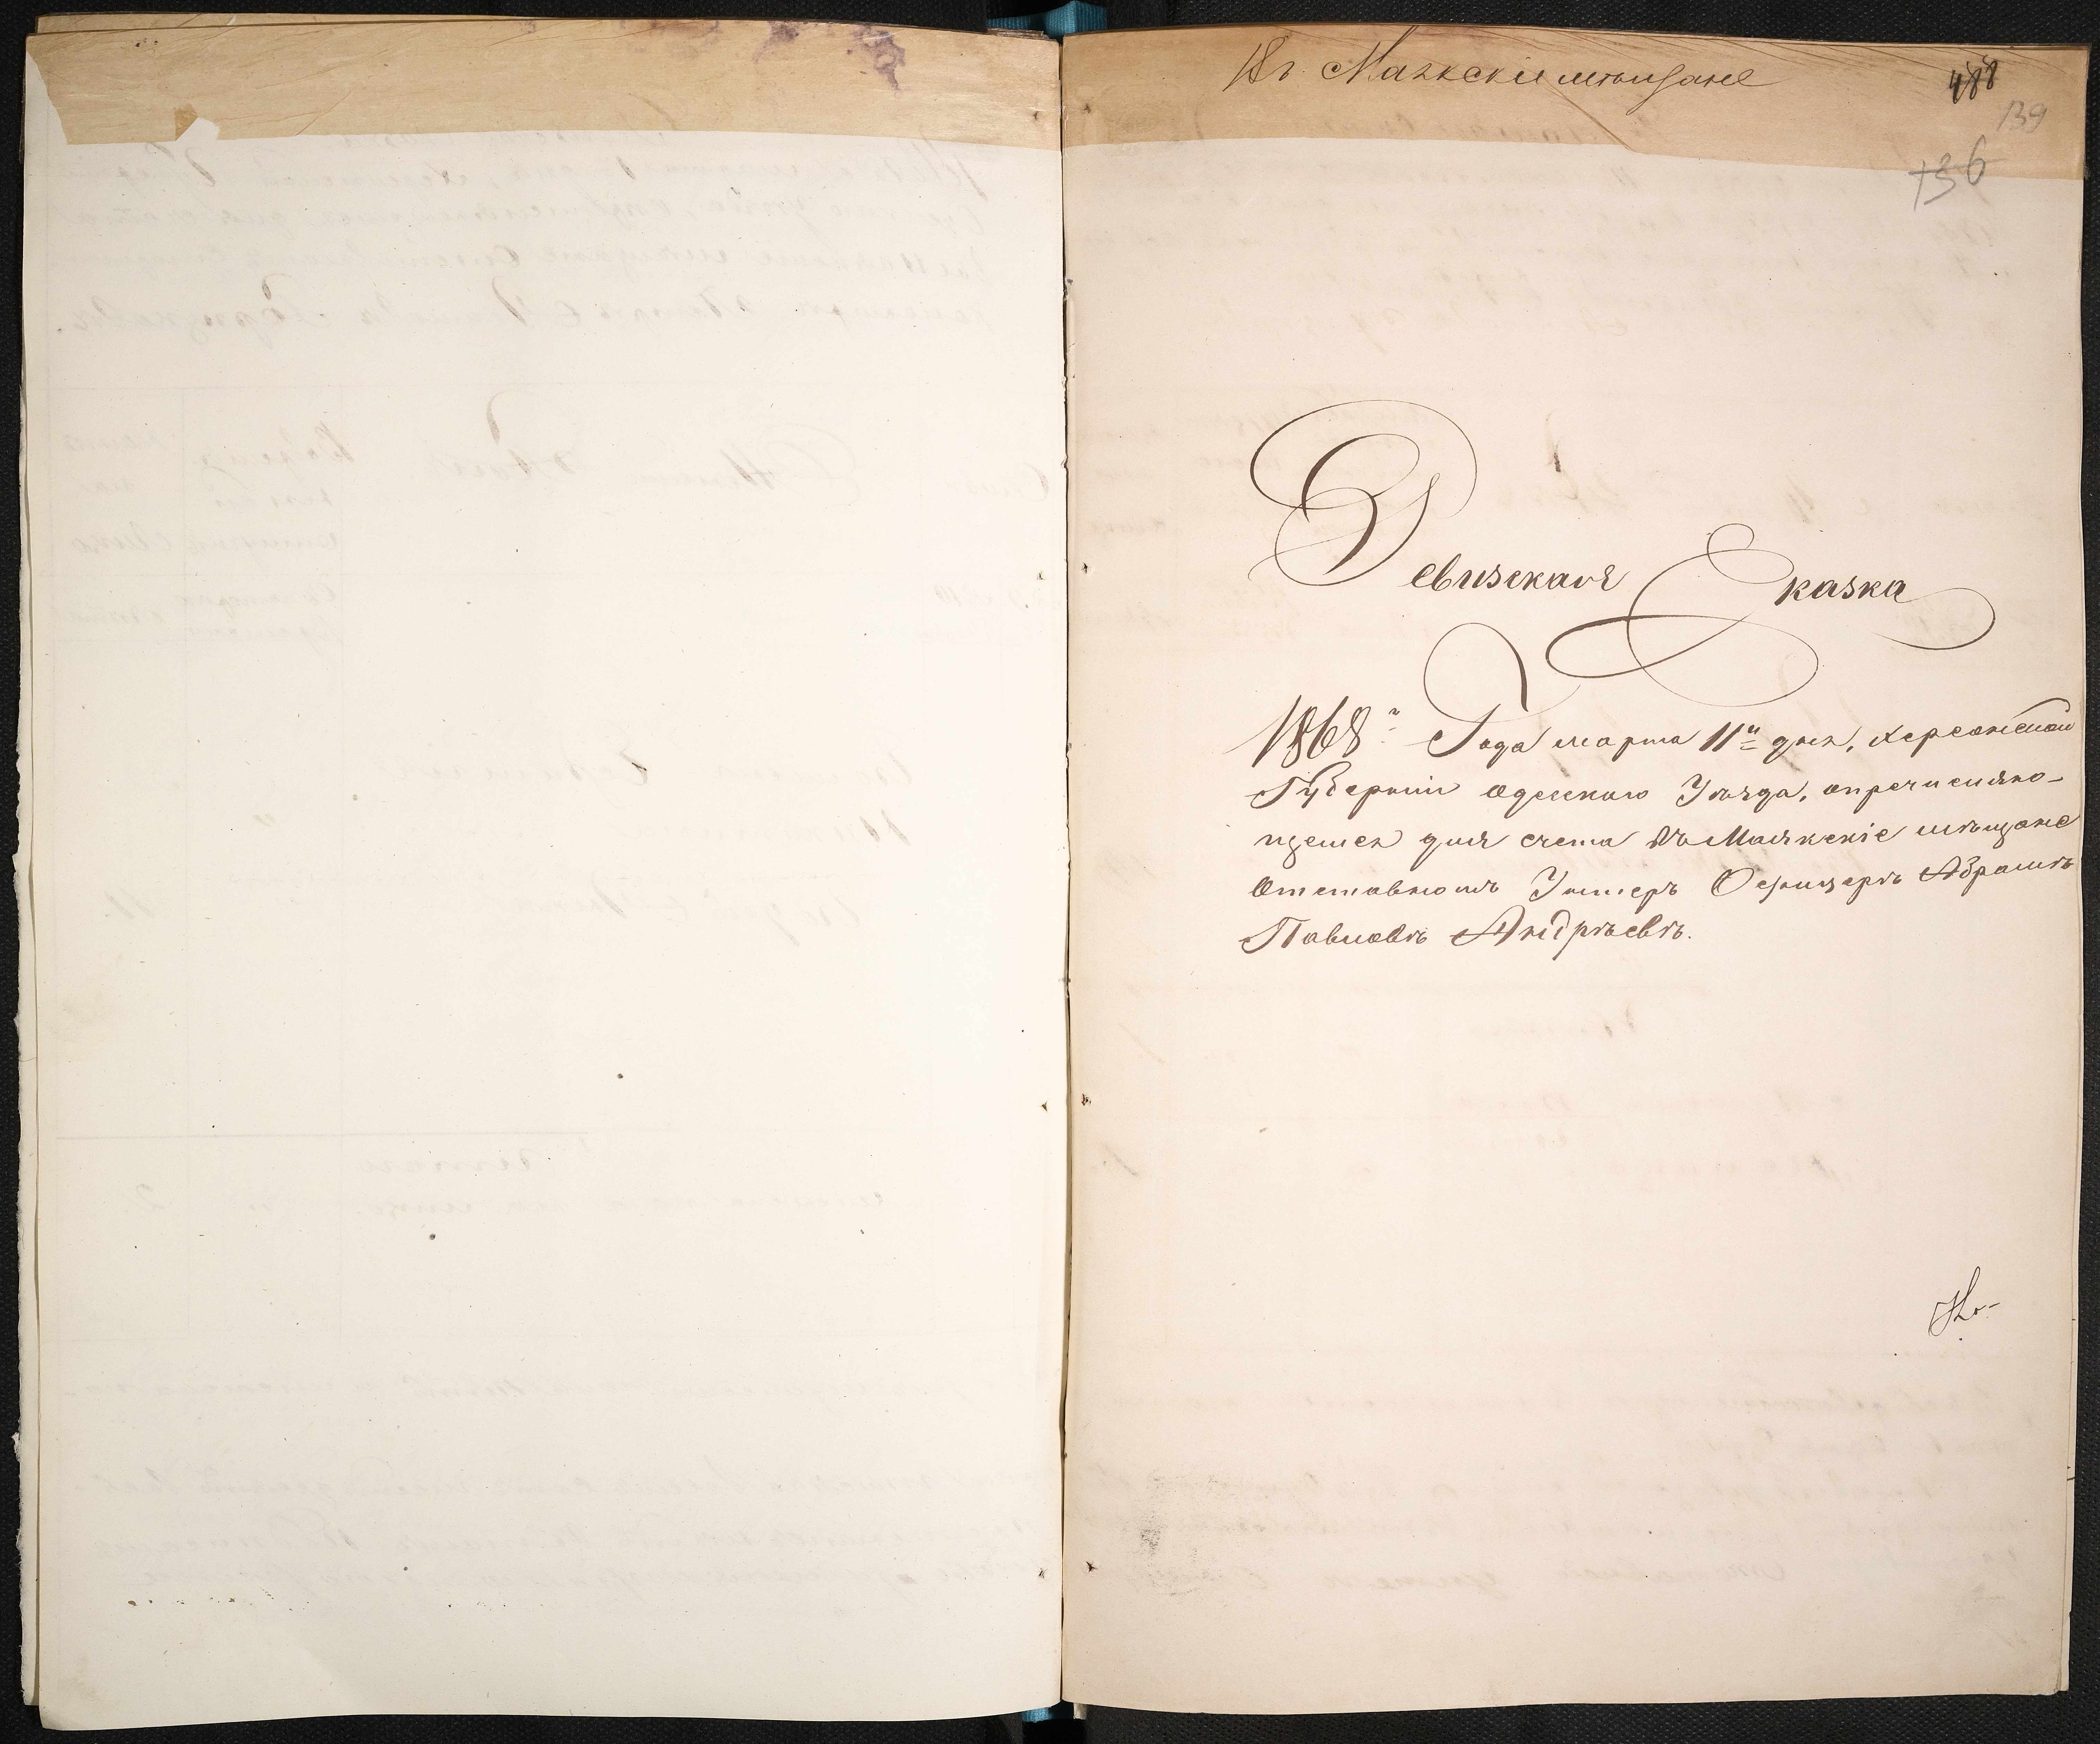 Въ Маякскіе мѣщане
488
139
136
Ревизская Сказка
1868го Года марта 11го дня, Херсонской
Губерніи Одесского Уѣзда, о причисляю-
щемся для счета въ Маякскіе мѣщане
Отставномъ Унтеръ Офицерѣ Абрамѣ
Павловѣ Андрѣевѣ.